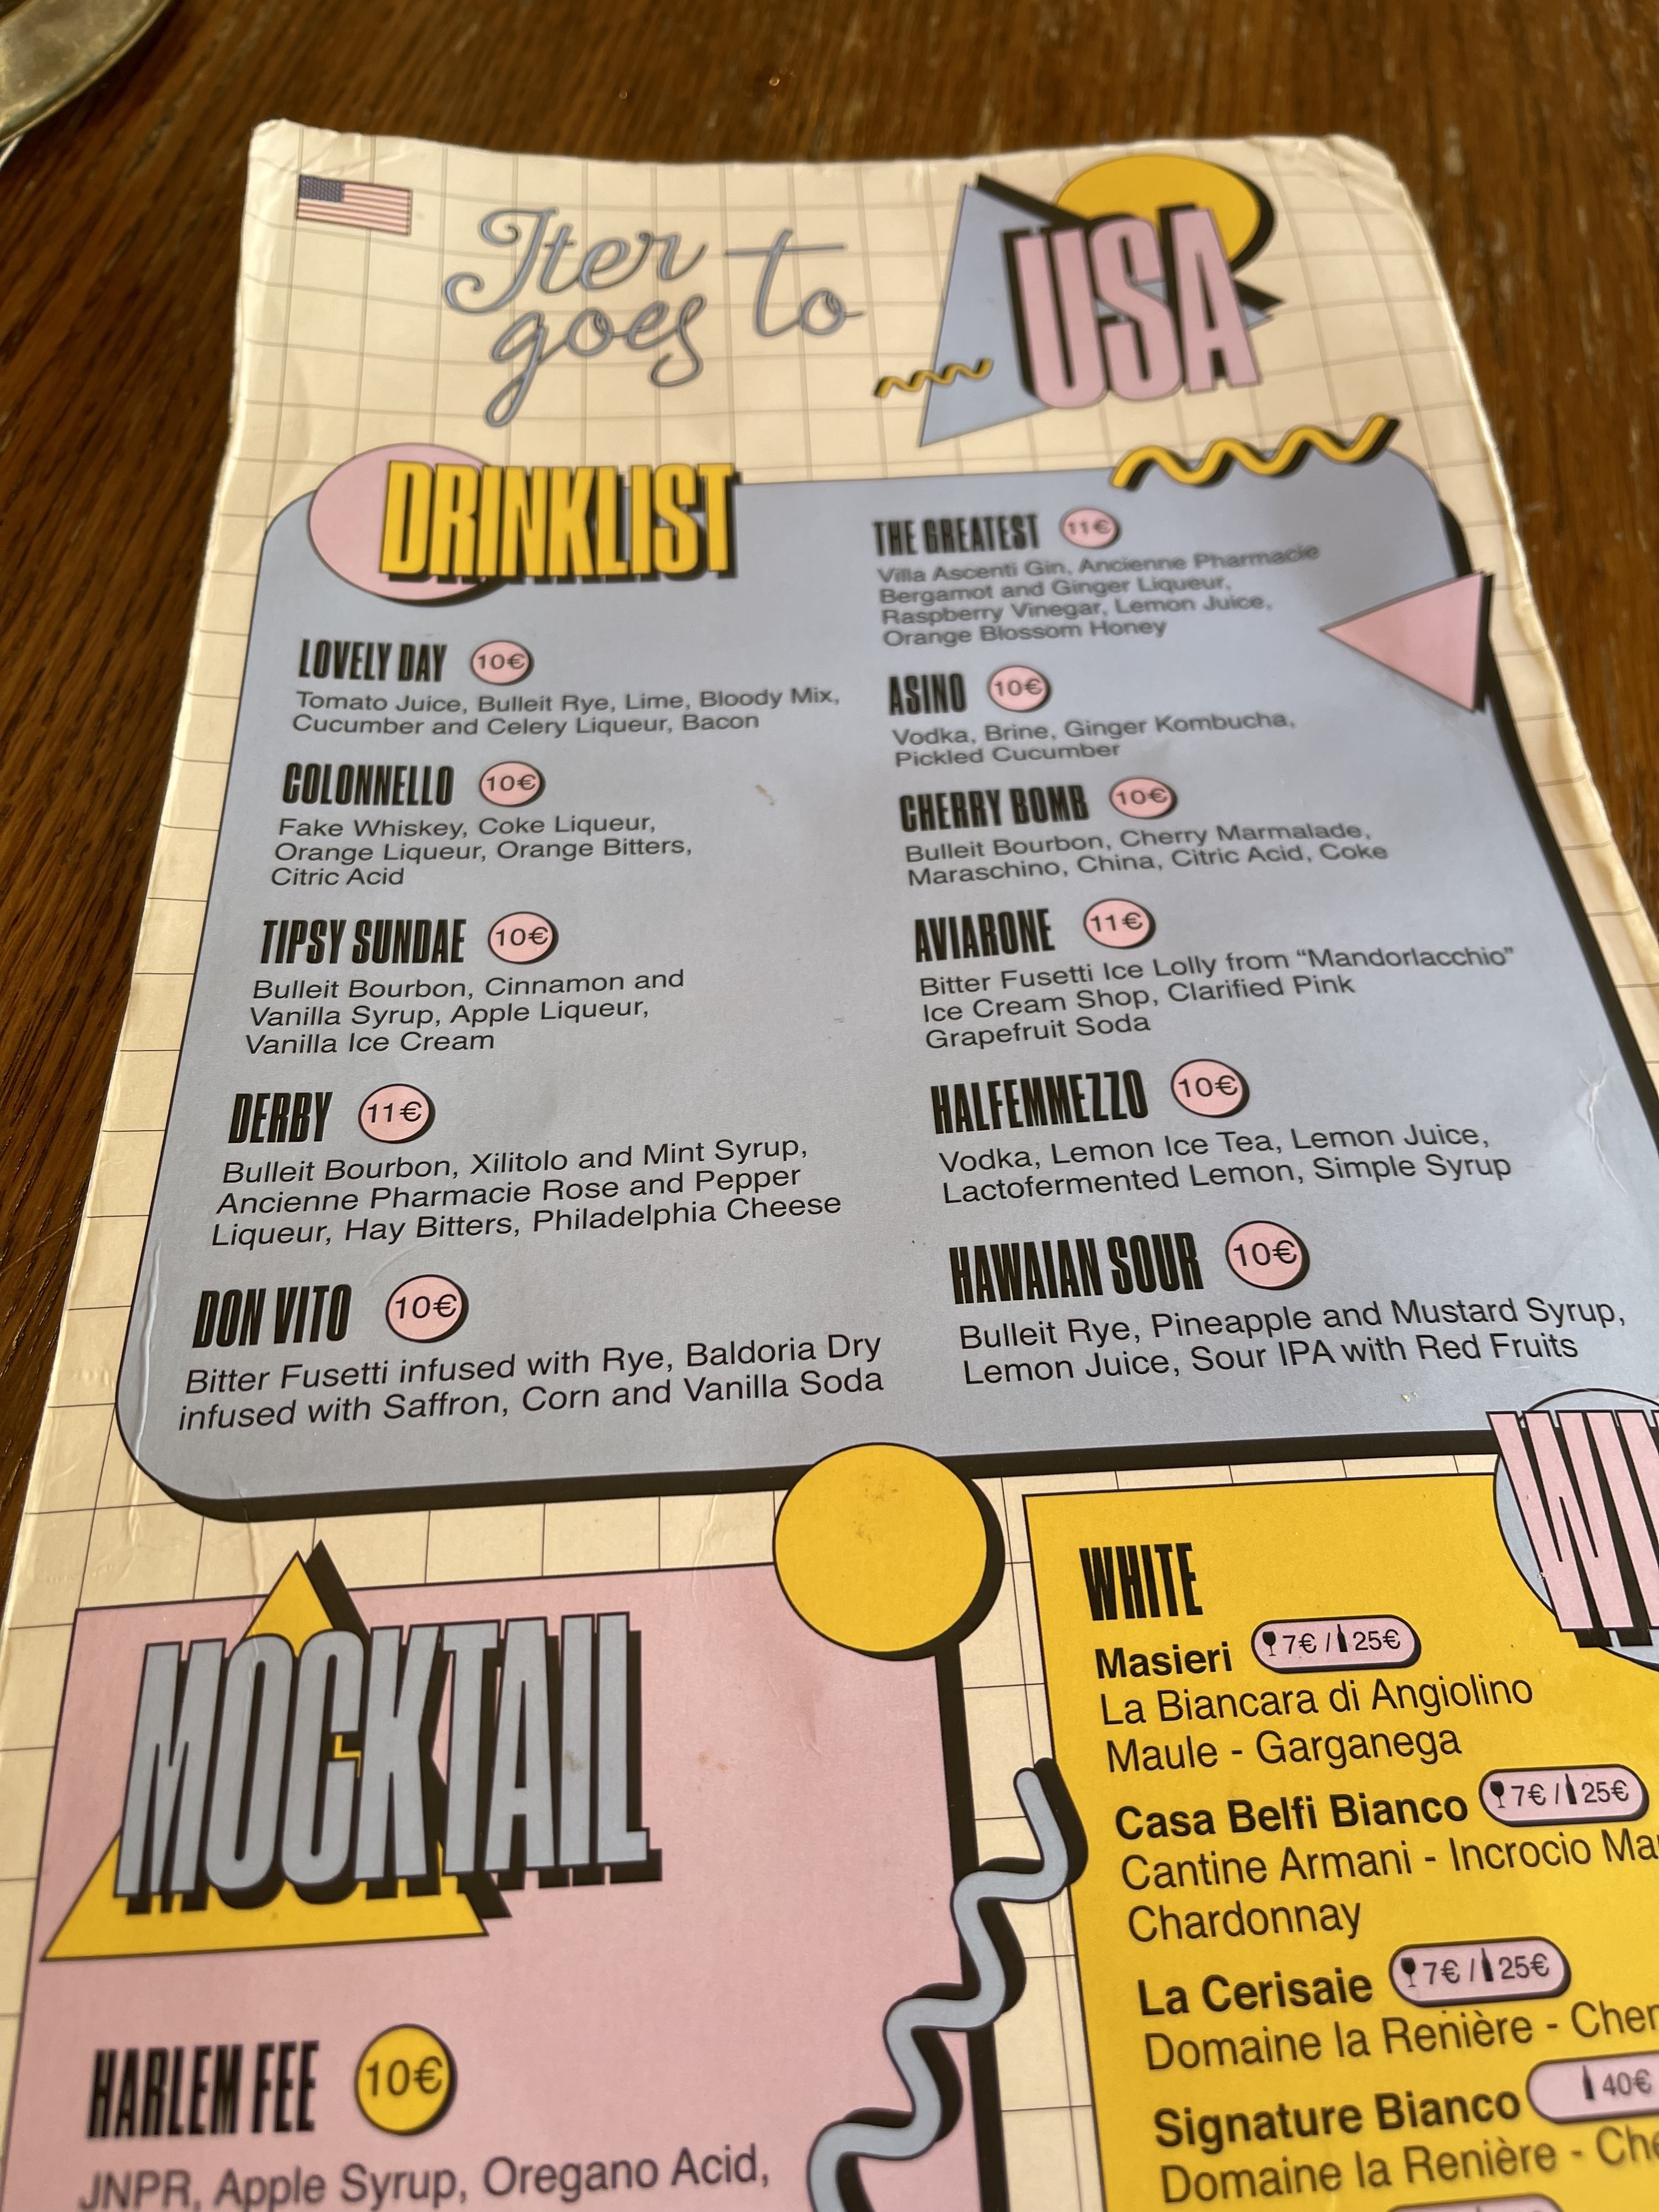 Iter goes to
USA
DRINKLIST
LOVELY DAY 10€
Tomato Juice, Bulleit Rye, Lime, Bloody Mix,
Cucumber and Celery Liqueur, Bacon
COLONNELLO 10€
Fake Whiskey, Coke Liqueur,
Orange Liqueur, Orange Bitters,
Citric Acid
TIPSY SUNDAE 10€
Bulleit Bourbon, Cinnamon and
Vanilla Syrup, Apple Liqueur,
Vanilla Ice Cream
DERBY 11€
Bulleit Bourbon, Xilitolo and Mint Syrup,
Ancienne Pharmacie Rose and Pepper
Liqueur, Hay Bitters, Philadelphia Cheese
DON VITO 10€
Bitter Fusetti infused with Rye, Baldoria Dry
infused with Saffron, Corn and Vanilla Soda
THE GREATEST 11€
Villa Ascenti Gin, Ancienne Pharmacie
Bergamot and Ginger Liqueur,
Raspberry Vinegar, Lemon Juice,
Orange Blossom Honey
ASINO 10€
Vodka, Brine, Ginger Kombucha,
Pickled Cucumber
CHERRY BOMB 10€
Bulleit Bourbon, Cherry Marmalade,
Maraschino, China, Citric Acid, Coke
AVIARONE 11€
Bitter Fusetti Ice Lolly from “Mandorlacchio”
Ice Cream Shop, Clarified Pink
Grapefruit Soda
HALFEMMEZZO 10€
Vodka, Lemon Ice Tea, Lemon Juice,
Lactofermented Lemon, Simple Syrup
HAWAIAN SOUR 10€
Bulleit Rye, Pineapple and Mustard Syrup,
Lemon Juice, Sour IPA with Red Fruits
MOCKTAIL
HARLEM FEE 10€
JNPR, Apple Syrup, Oregano Acid,
WHITE
Masieri 7€ / 25€
La Biancara di Angiolino
Maule - Garganega
Casa Belfi Bianco 7€ / 25€
Cantine Armani - Incrocio
Chardonnay
La Cerisaie 7€ / 25€
Domaine la Renière -
Signature Bianco 40€
Domaine la Renière -